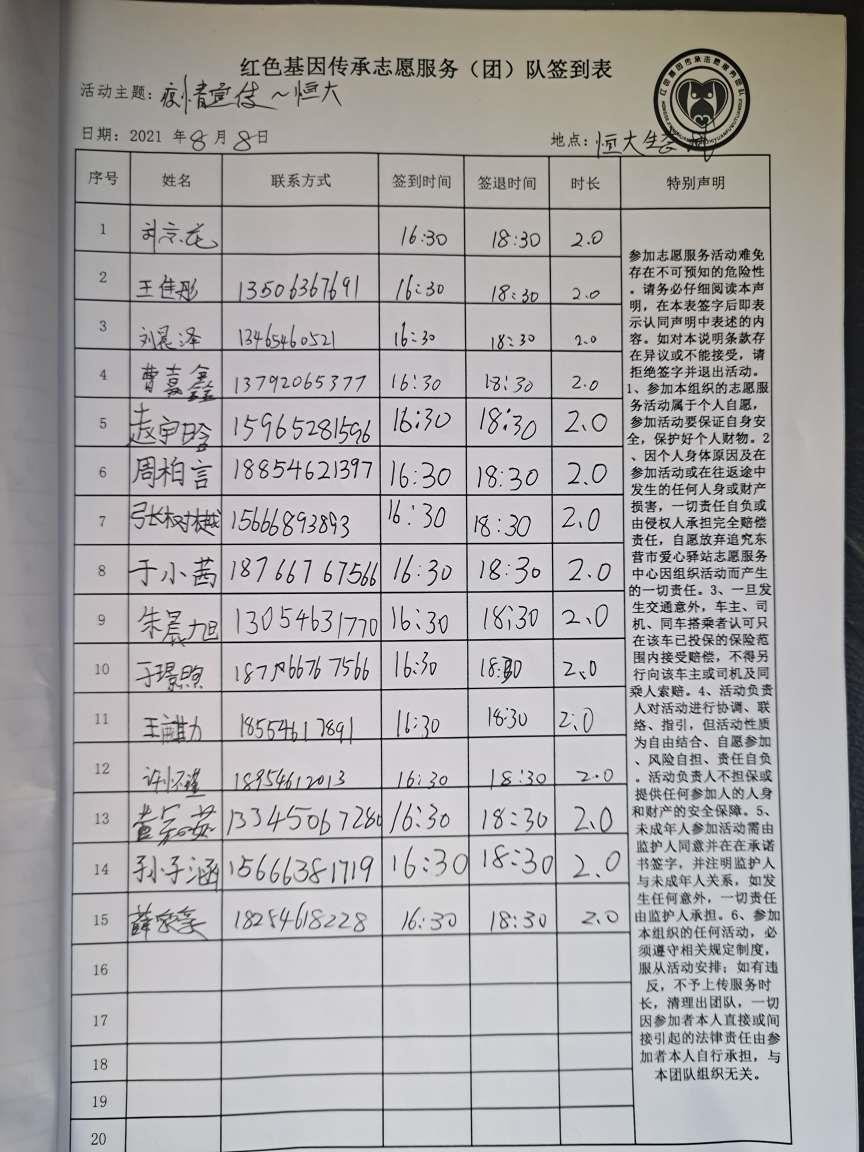 红色基因传承志愿服务（团）队签到表
活动主题：疫情宣传～恒大
日期：2021 年 8 月 8 日 地点：恒大生态
序号 姓名 联系方式 签到时间 签退时间 时长 特别声明
1 刘京花 16:30 18:30 2.0
2 王佳彤 13506367691 16:30 18:30 2.0
3 刘晨泽 13465460521 16:30 18:30 2.0
4 曹嘉鑫 13792065377 16:30 18:30 2.0
5 赵宇晗 15965281596 16:30 18:30 2.0
6 周柏言 18854621397 16:30 18:30 2.0
7 张树樾 15666893893 16:30 18:30 2.0
8 于小茜 18766767566 16:30 18:30 2.0
9 朱晨旭 13054631770 16:30 18:30 2.0
10 于璟煦 16:30 18:30 2.0
11 王麒 18554617891 16:30 18:30 2.0
12 许怀瑾 18954612013 16:30 18:30 2.0
13 13345067280 16:30 18:30 2.0
14 孙子涵 15666381719 16:30 18:30 2.0
15 薛 18254618228 16:30 18:30 2.0
16
17
18
19
20
参加志愿服务活动难免
存在不可预知的危险性
。请务必仔细阅读本声
明，在本表签字后即表
示认同声明中表述的内
容。如对本说明条款存
在异议或不能接受，请
拒绝签字并退出活动。
1、参加本组织的志愿服
务活动属于个人自愿，
参加活动要保证自身安
全，保护好个人财物。2
、因个人身体原因及在
参加活动或在往返途中
发生的任何人身或财产
损害，一切责任自负或
由侵权人承担完全赔偿
责任，自愿放弃追究东
营市爱心驿站志愿服务
中心因组织活动而产生
的一切责任。3、一旦发
生交通意外，车主、司
机、同车搭乘者认可只
在该车已投保的保险范
围内接受赔偿，不得另
行向该车主或司机及同
乘人索赔。4、活动负责
人对活动进行协调、联
络、指引，但活动性质
为自由结合、自愿参加
、风险自担、责任自负
。活动负责人不担保或
提供任何参加人的人身
和财产的安全保障。5、
未成年人参加活动需由
监护人同意并在在承诺
书签字，并注明监护人
与未成年人关系，如发
生任何意外，一切责任
由监护人承担。6、参加
本组织的任何活动，必
须遵守相关规定制度，
服从活动安排；如有违
反，不予上传服务时
长，清理出团队，一切
因参加者本人直接或间
接引起的法律责任由参
加者本人自行承担，与
本团队组织无关。